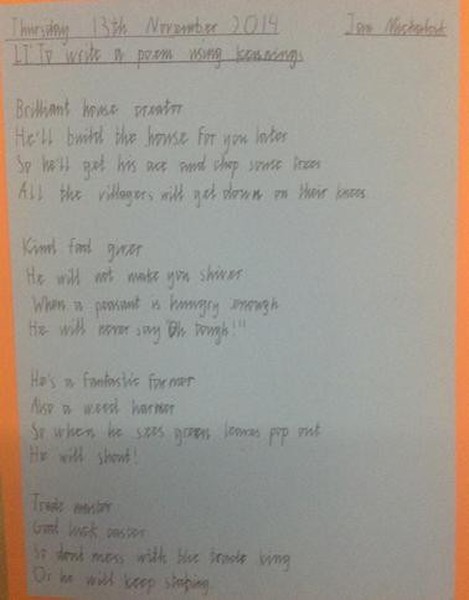 Thursday 13th November 2014
LI To write a poem using kennings.
Brilliant house creator
He'll build the house for you later
So he'll get his axe and chop some trees
All the villagers will get down on their knees
Kind food giver
He will not make you shiver
When a peasant is hungry enough
He will never say "Oh tough!"
He's a fantastic farmer
Also a weed harmer
So when he sees green leaves pop out
He will shout!
Trade master
Good luck caster
So dont mess with the trade king
Or he will keep